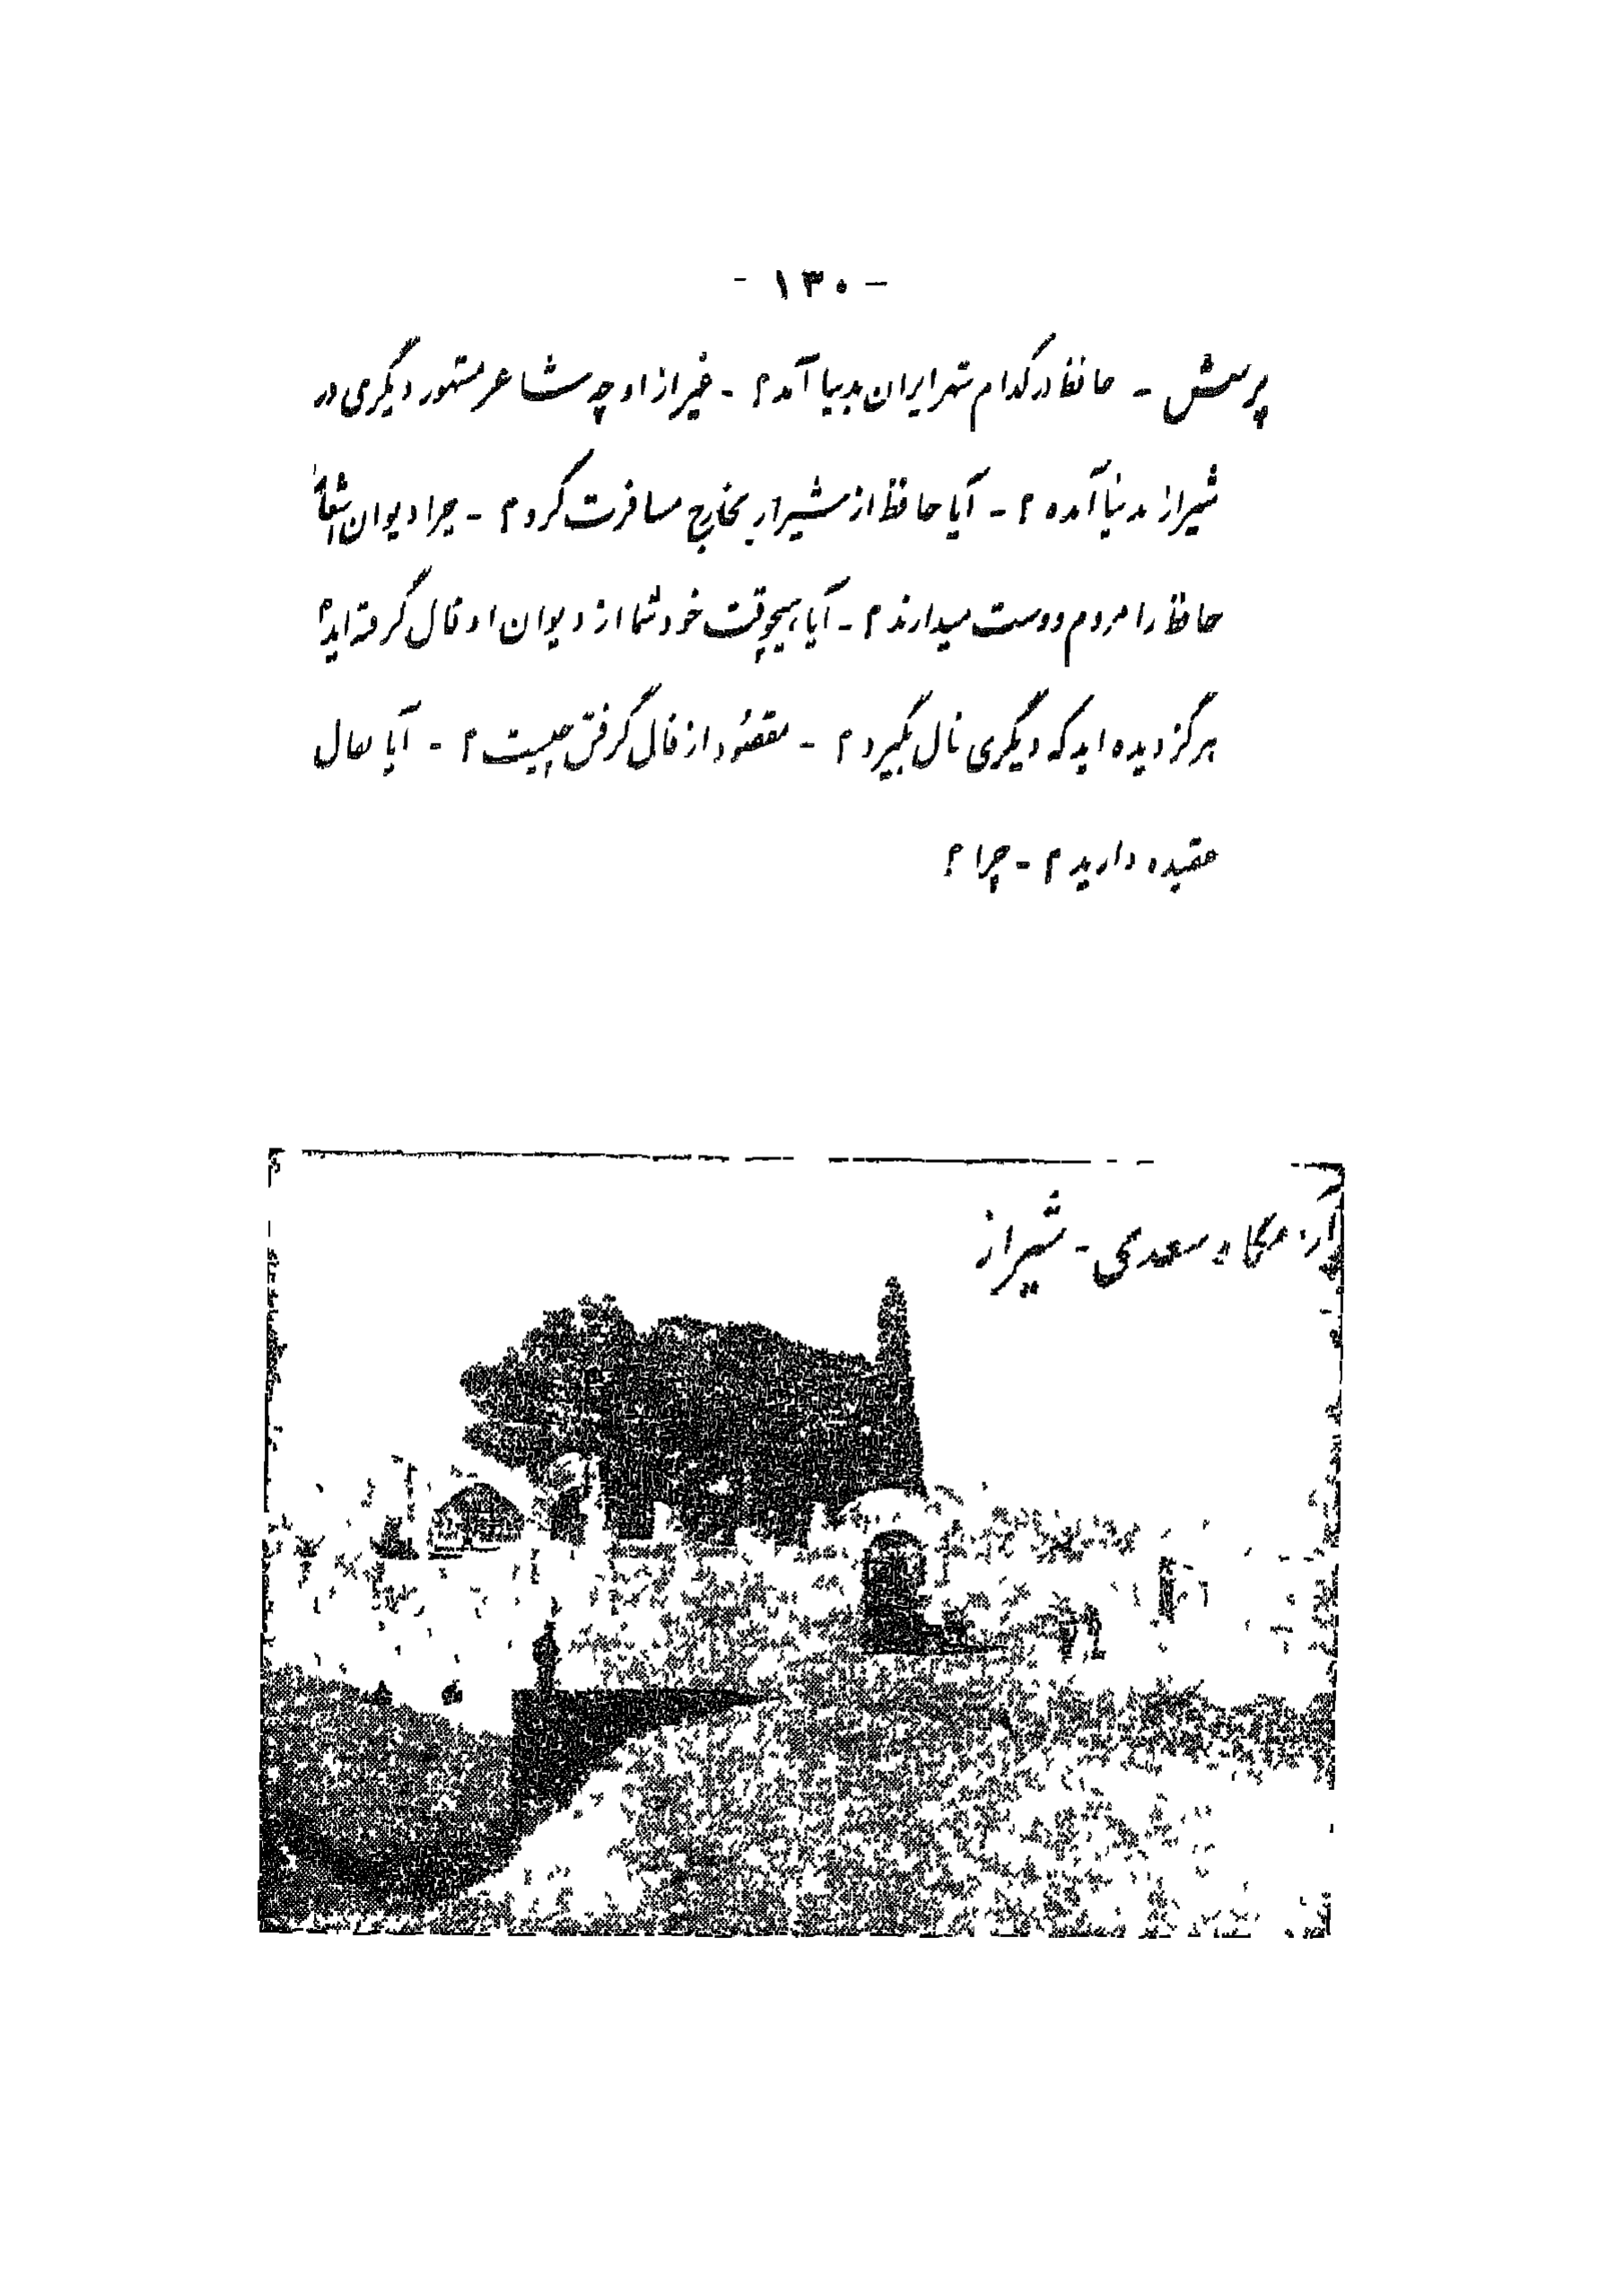 - ۱۳۰ -
پرسش - حافظ در کدام شهر ایران بدنیا آمد؟ - غیر از او چه شاعر مشهور دیگری در
شیراز بدنیا آمده؟ - آیا حافظ از شیراز بخارج مسافرت کرد؟ - چرا دیوان اشعار
حافظ را مردم دوست میدارند؟ - آیا هیچوقت خود شما از دیوان او فال گرفته‌اید؟
هرگز دیده‌اید که دیگری فال بگیرد؟ - مقصود از فال گرفتن چیست؟ - آیا بفال
عقیده دارید؟ - چرا؟
سعدی - شیراز